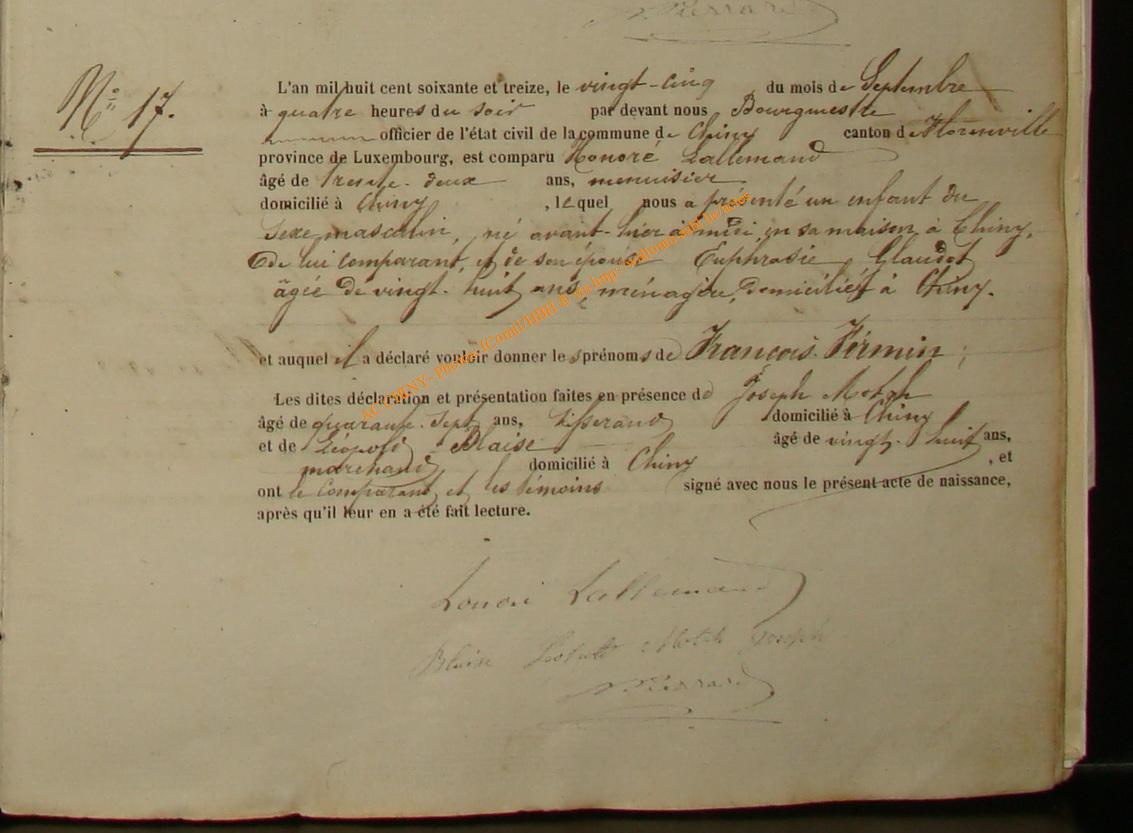 Pierrard
N° 17.
L'an mil huit cent soixante et treize, le vingt-cinq du mois de Septembre
à quatre heures du soir par devant nous Bourgmestre
officier de l'état civil de la commune de Chiny canton de Florenville
province de Luxembourg, est comparu Honoré Lallemand
âgé de trente-deux ans, menuisier
domicilié à Chiny, lequel nous a présenté un enfant du
sexe masculin, né avant-hier à midi, en sa maison à Chiny,
de lui comparant, et de son épouse Euphrasie Glaudot
âgée de vingt-huit ans, ménagère, domiciliés à Chiny.
et auquel il a déclaré vouloir donner les prénoms de François Firmin;
Les dites déclaration et présentation faites en présence de Joseph Motch
âgé de quarante-sept ans, tisserand domicilié à Chiny
et de Léopold Blaise âgé de vingt-huit ans,
marchand domicilié à Chiny, et
ont le comparant et les témoins signé avec nous le présent acte de naissance,
après qu'il leur en a été fait lecture.
Lallemand
Blaise Motch Joseph
Pierrard